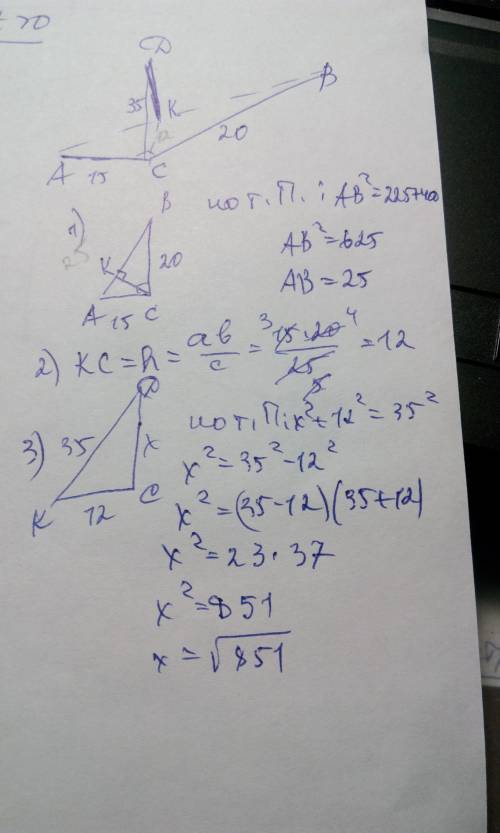 D
35
K
B
20
A 15 C
1)
B
K
20
A 15 C
по т. П. : AB²=225+400
AB²=625
AB=25
2) KC=h=ab/c=15·20/25=12
3 4 5
3)
D
35
x
K 12 C
по т. П: x²+12²=35²
x²=35²-12²
x²=(35-12)(35+12)
x²=23·37
x²=851
x=√851